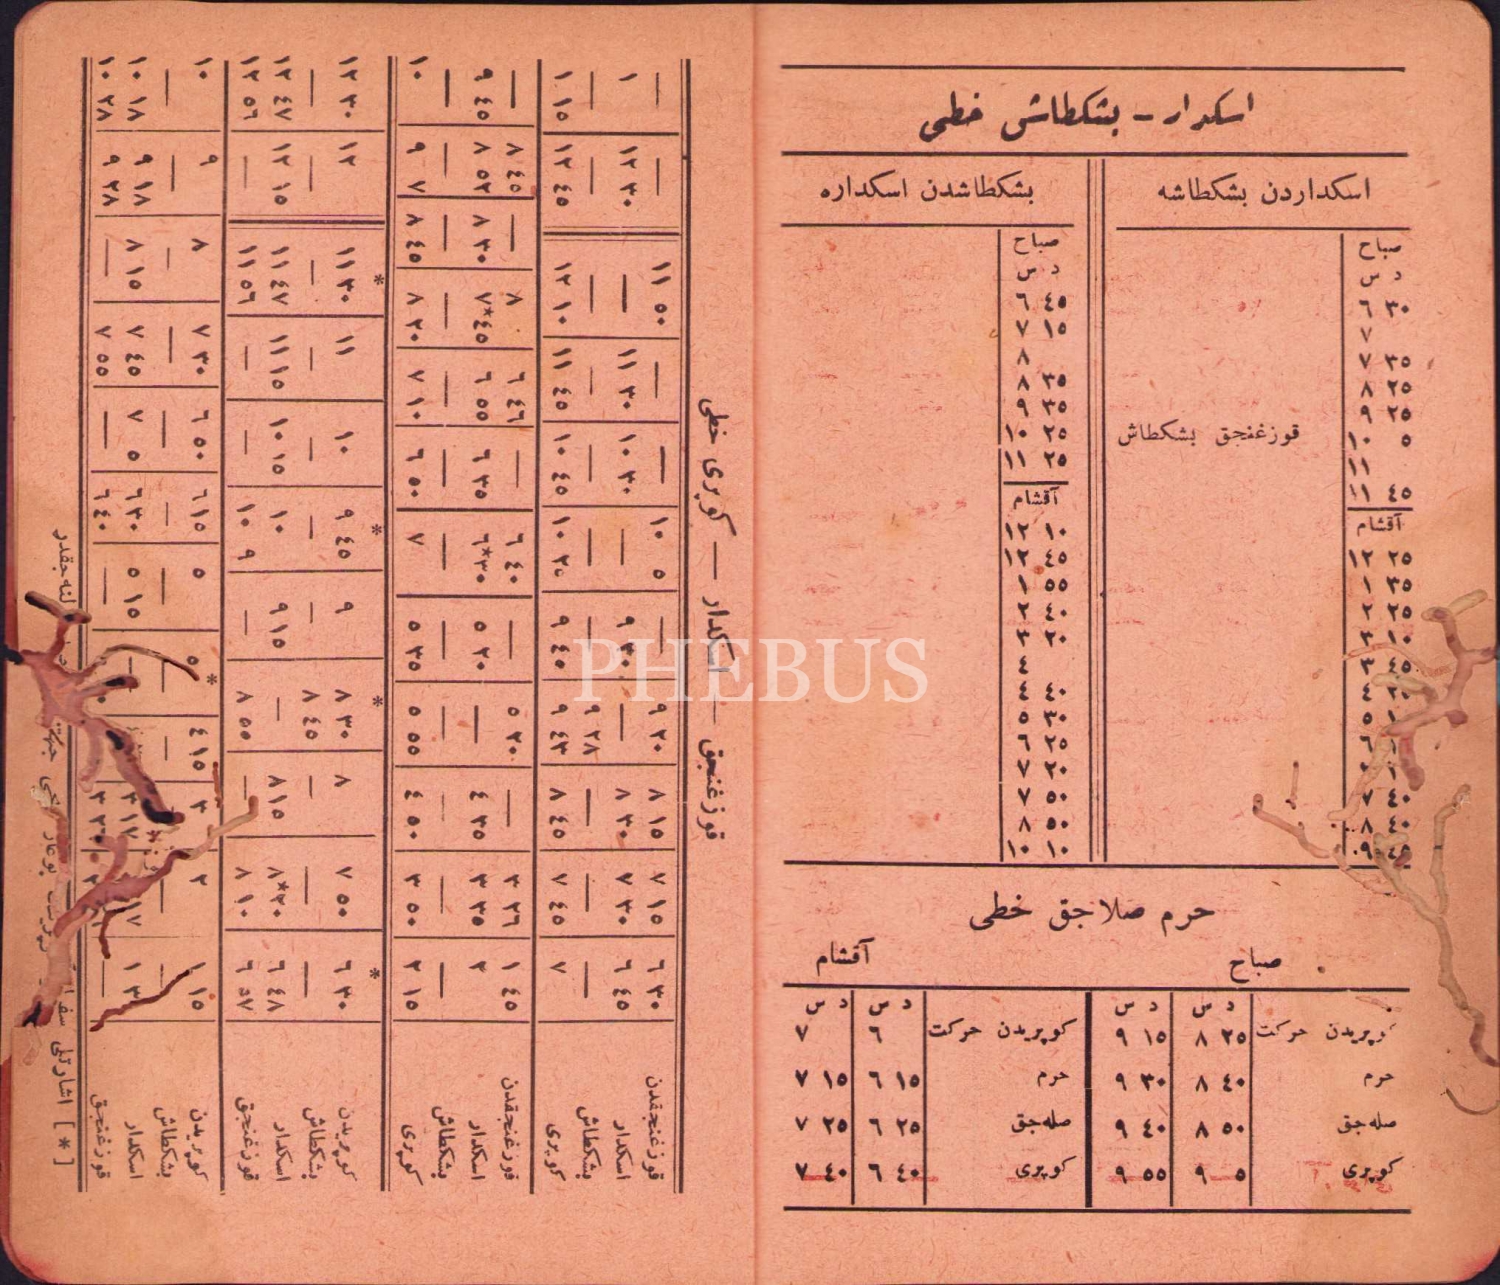 اسكدار – بشكطاش خطی
اسكداردن بشكطاشه
صباح
د س
٦ ٣٠
٧
٧ ٣٥
٨ ٢٥
٩ ٢٥
١٠ ٥ قوزغنجق بشكطاش
١١
١١ ٤٥
آقشام
١٢ ٢٥
١ ٣٥
٢ ٢٥
٣ ١٠
٣ ٤٥
٧ ٤٠
٨ ٤٠
بشكطاشدن اسكداره
صباح
د س
٦ ٤٥
٧ ١٥
٨
٨ ٣٥
٩ ٣٥
١٠ ٢٥
١١ ٢٥
آقشام
١٢ ١٠
١٢ ٤٥
١ ٥٥
٢ ٤٠
٣ ٢٠
٤
٤ ٤٠
٥ ٣٠
٦ ٢٥
٧ ٢٠
٧ ٥٠
٨ ٥٠
١٠ ١٠
حرم صلاجق خطی
صباح
د س د س
كوپریدن حركت ٨ ٢٥ ٩ ١٥
حرم ٨ ٤٠ ٩ ٣٠
صله‌جق ٨ ٥٠ ٩ ٤٠
كوپری ٩ ٥ ٩ ٥٥
آقشام
د س د س
كوپریدن حركت ٦ ٧
حرم ٦ ١٥ ٧ ١٥
صله‌جق ٦ ٢٥ ٧ ٢٥
كوپری ٦ ٤٠ ٧ ٤٠
قوزغنجق – اسكدار – كوپری خطی
قوزغنجقدن ٦ ٣٠ ٧ ١٥ ٨ ١٥ ٩ ٢٠ — ١٠ ٥ — — ١١ ٥٠ — —
اسكدار ٦ ٤٥ ٧ ٣٠ ٨ ٣٠ — ٩ ٣٠ — ١٠ ٣٠ ١١ ٣٠ — ١٢ ٣٠ ١
بشكطاش — — — ٩ ٢٨ — — — — — — —
كوپری ٧ ٧ ٤٥ ٨ ٤٥ ٩ ٤٣ ٩ ٤٥ ١٠ ٢٥ ١٠ ٤٥ ١١ ٤٥ ١٢ ١٠ ١٢ ٤٥ ١ ١٥
قوزغنجقدن ١ ٤٥ ٣ ٢٦ — ٥ ٢٠ — ٦ ٤٠ — ٦ ٤٦ ٨ — ٨ ٤٥ —
اسكدار ٢ ٣ ٣٥ ٤ ٣٥ — ٥ ٢٠ ٦*٣٠ ٦ ٣٥ ٦ ٥٥ ٧*٤٥ ٨ ٣٠ ٨ ٥٢ ٩ ٤٥
بشكطاش — — — — — — — — — — — —
كوپری ٢ ١٥ ٣ ٥٠ ٤ ٥٠ ٥ ٥٥ ٥ ٣٥ ٧ ٦ ٥٠ ٧ ١٠ ٨ ٢٠ ٨ ٤٥ ٩ ٧ ١٠
كوپریدن ٦ ٣٠ ٧ ٥٠ ٨ ٨ ٣٠ ٩ ٩ ٤٥ ١٠ ١١ ١١ ٣٠ ١٢ ١٢ ٣٠
بشكطاش — — — ٨ ٤٥ — — — — — — —
اسكدار ٦ ٤٨ ٨*٢٠ ٨ ١٥ — ٩ ١٥ ١٠ ١٠ ١٥ ١١ ١٥ ١١ ٤٧ ١٢ ١٥ ١٢ ٤٧
قوزغنجق ٦ ٥٧ ٨ ١٠ — ٨ ٥٥ — ١٠ ٩ — — ١١ ٥٦ — ١٢ ٥٦
كوپریدن ١ ١٥ ٢ ٣ ٤ ١٥ ٥ ٥ ٦ ١٥ ٦ ٥٠ ٧ ٣٠ ٨ ٩ ١٠
بشكطاش
اسكدار ٥ ١٥ ٦ ٣٠ ٧ ٥ ٧ ٤٥ ٨ ١٥ ٩ ١٨ ١٠ ١٨
قوزغنجق — ٦ ٤٠ — ٧ ٥٥ — ٩ ٢٨ ١٠ ٢٨
[ * ] اشارتلی
PHEBUS